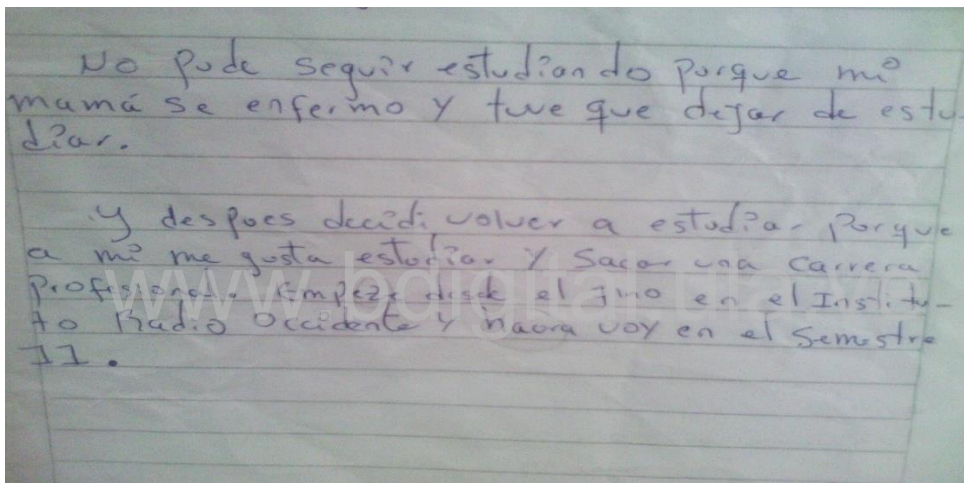 No pude seguir estudiando porque mi
mamá se enfermo y tuve que dejar de estu-
diar.
y despues decidi volver a estudiar porque
a mi me gusta estudiar y sacar una carrera
profesional. Empeze desde el 7mo en el Institu-
to Radio Occidente y haora voy en el semestre
11.
www.bdigital.ula.v